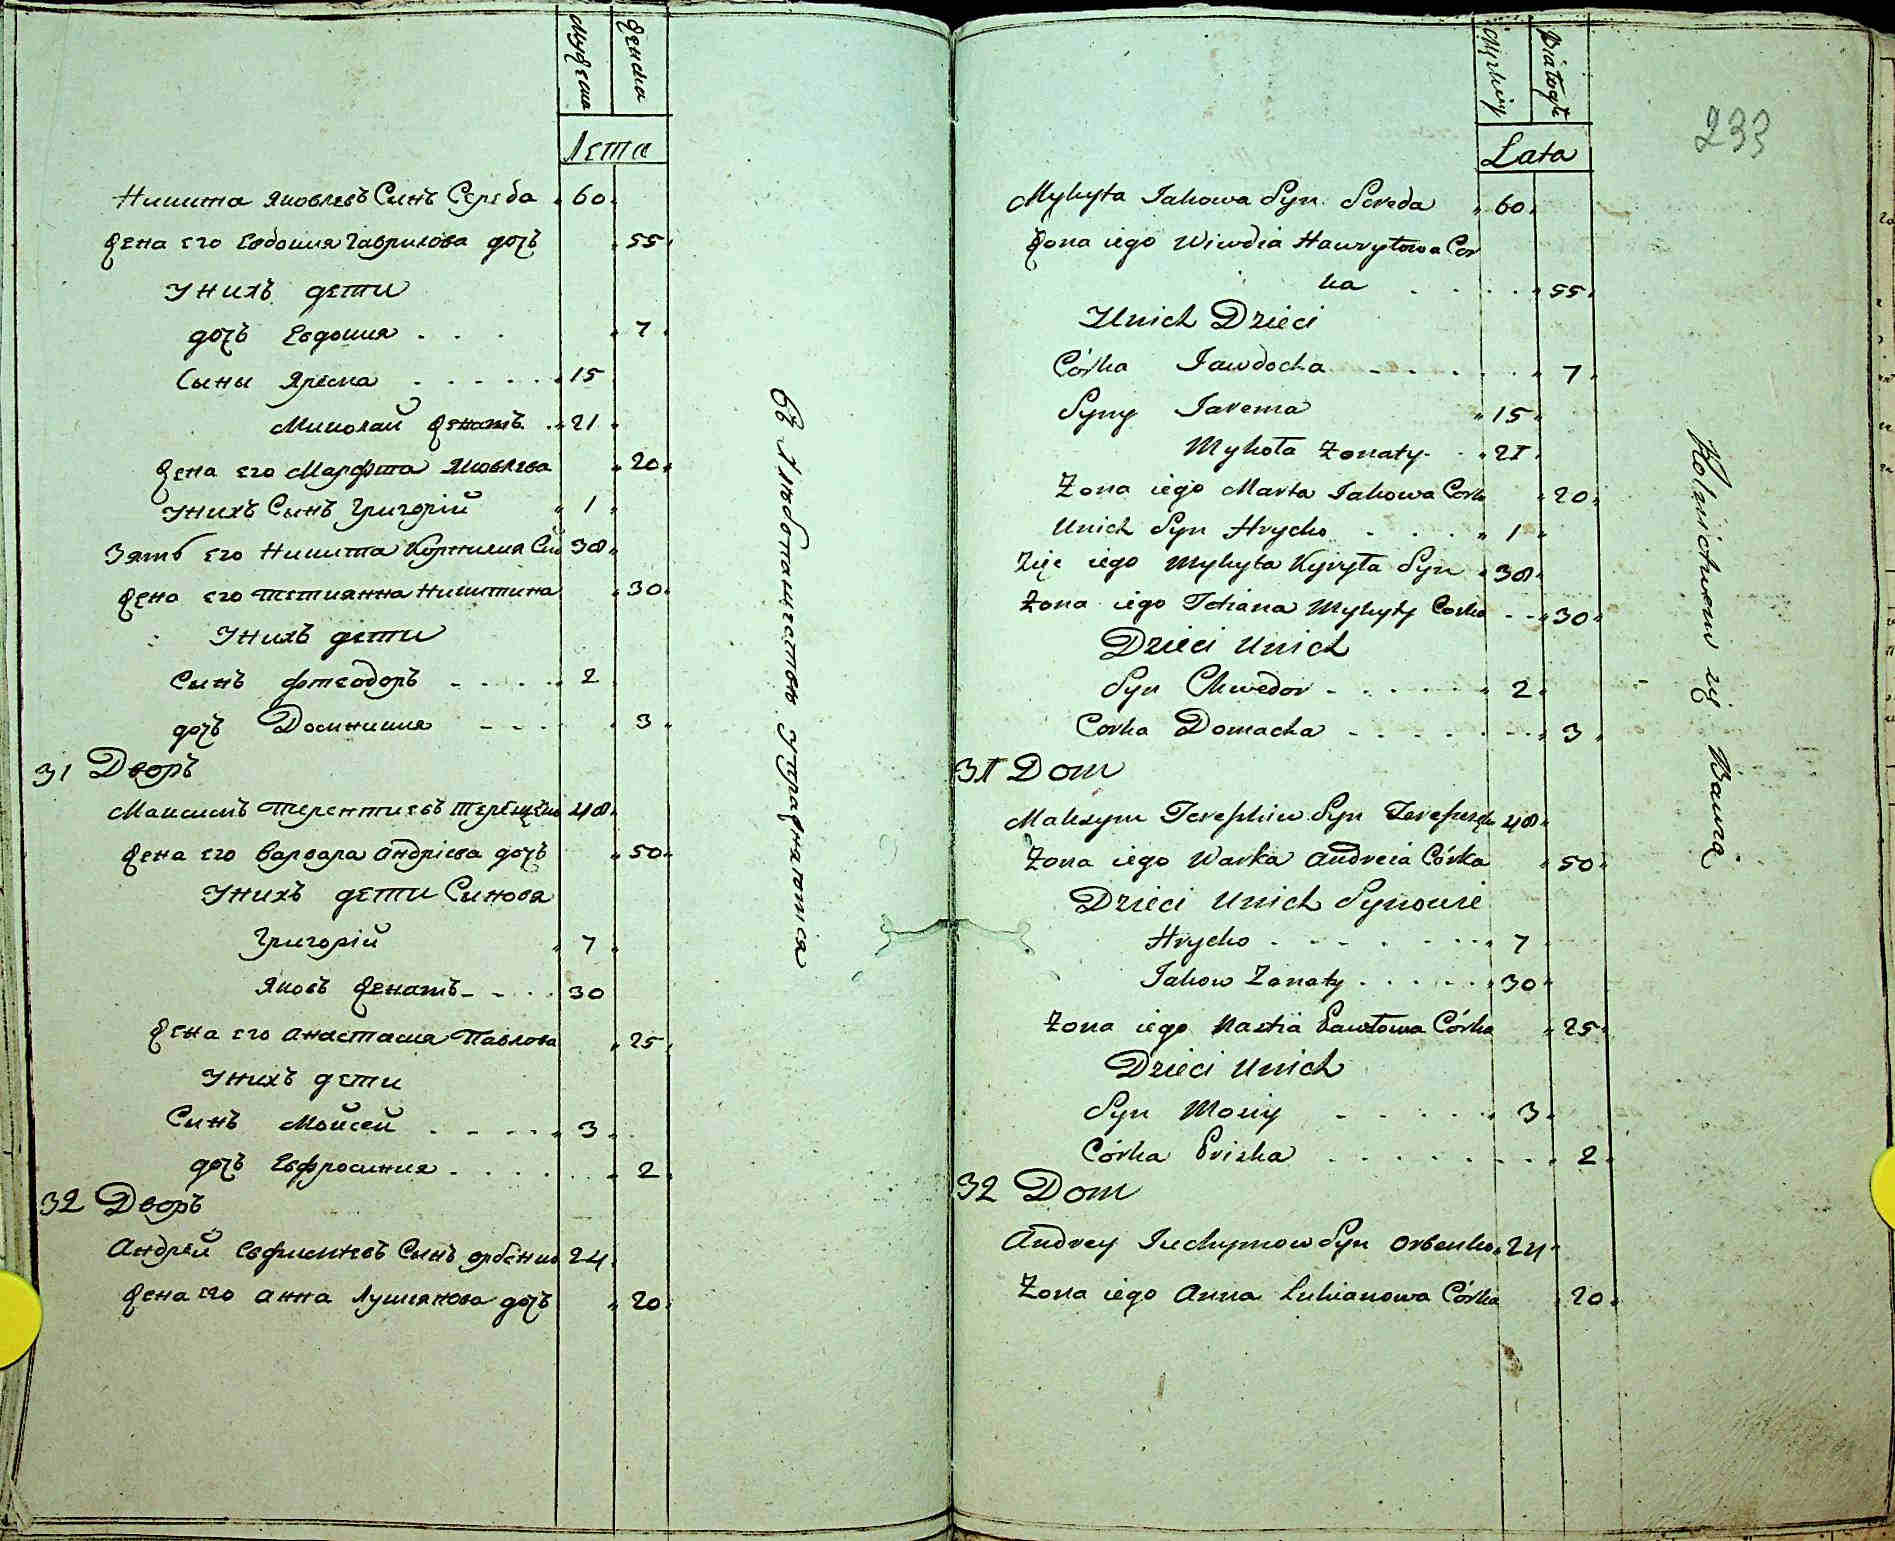 Мужеска
Женска
Лета
Никита Яковлевъ Синъ Середа 60
Жена его Евдокия Гаврилова дочъ 55
У нихъ дети
дочъ Евдокия 7
Сыны Ярема 15
Миколай Женатъ 21
Жена его Марфта Яковлева 20
У нихъ Сынъ Григорій 1
Зять его Никита Корнилия Син 38
Жена его Тетианна Никитина 30
У нихъ дети
Сынъ Фтеодоръ 2
дочъ Домникия 3
31 Дворъ
Максимъ Терентиевъ 48
Жена его Варвара Андріева дочъ 50
У нихъ дети Синовя
Григорій 7
Яковъ Женатъ 30
Жена его Анастасия Павлова 25
У нихъ дети
Синъ Мойсей 3
дочъ Евфросиния 2
32 Дворъ
Андрей Евфимиевъ Синъ Орбенко 24
Жена его Анна Лукиянова дочъ 20
въ Хлебопашестви упражняются
233
Lata
Mykyta Jakowa Syn Sereda 60
Żona iego Wiwdia Hawryłowa Cor
ka 55
U nich Dzieci
Córka Jawdocha 7
Syny Jarema 15
Mykoła Żonaty 21
Żona iego Marta Jakowa Cork 20
U nich Syn Hrycko 1
Zięć iego Mykyta Kyryła Syn 38
Żona iego Tetiana Mykyty Corka 30
Dzieci U nich
Syn Chwedor 2
Corka Domacha 3
31 Dom
Maksym Syn 48
Żona iego Warka Andreia Córka 50
Dzieci U nich Synowie
Hrycko 7
Jakow Żonaty 30
Żona iego Nastia Pawłowa Córka 25
Dzieci U nich
Syn Mosiy 3
Córka Priska 2
32 Dom
Andrey Juchymow Syn Orbenko 24
Żona iego Anna Lukianowa Córka 20
Rolnictwem się Bawią